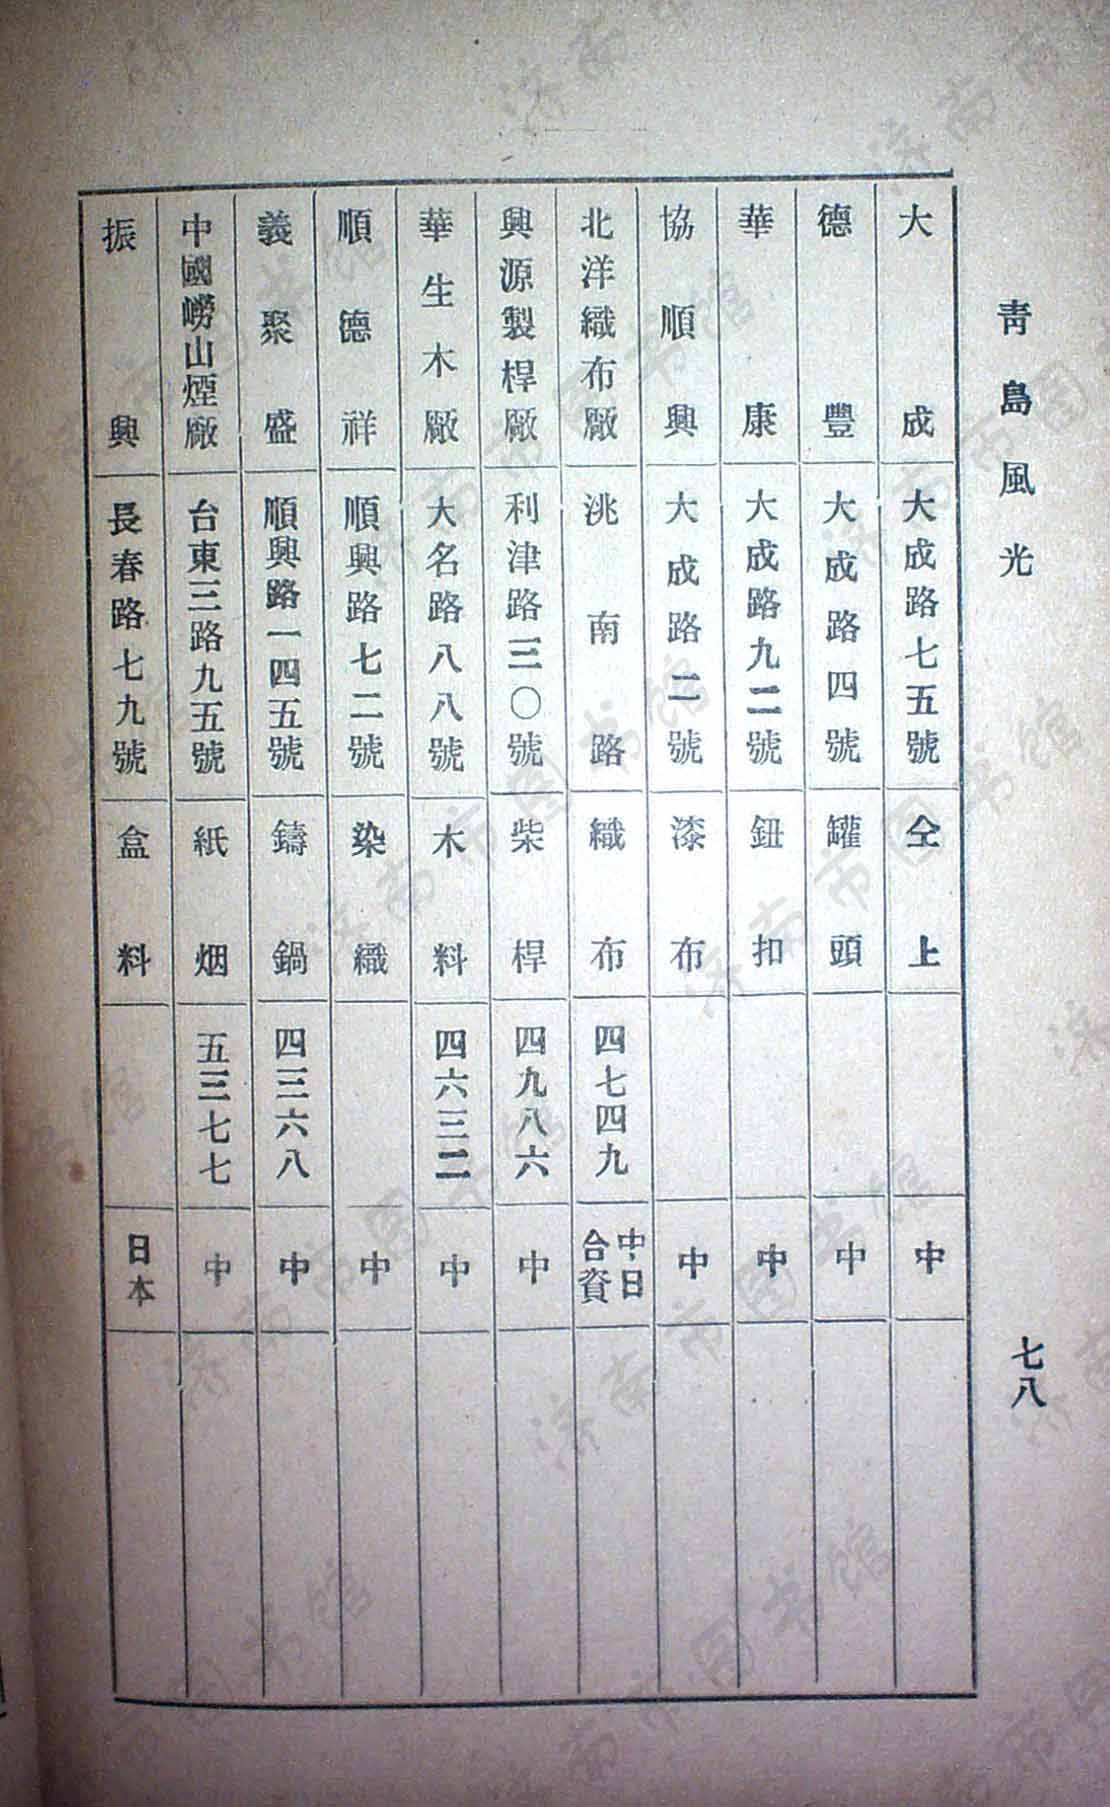 青島風光
七八
大成 大成路七五號 仝上 中
德豐 大成路四號 罐頭 中
華康 大成路九二號 鈕扣 中
協順興 大成路二號 漆布 中
北洋織布廠 洮南路 織布 四七四九 中日合資
興源製桿廠 利津路三〇號 柴桿 四九八六 中
華生木廠 大名路八八號 木料 四六三二 中
順德祥 順興路七二號 染織 中
義聚盛 順興路一四五號 鑄鍋 四三六八 中
中國嶗山煙廠 台東三路九五號 紙烟 五三七七 中
振興 長春路七九號 盒料 日本
济南市图书馆